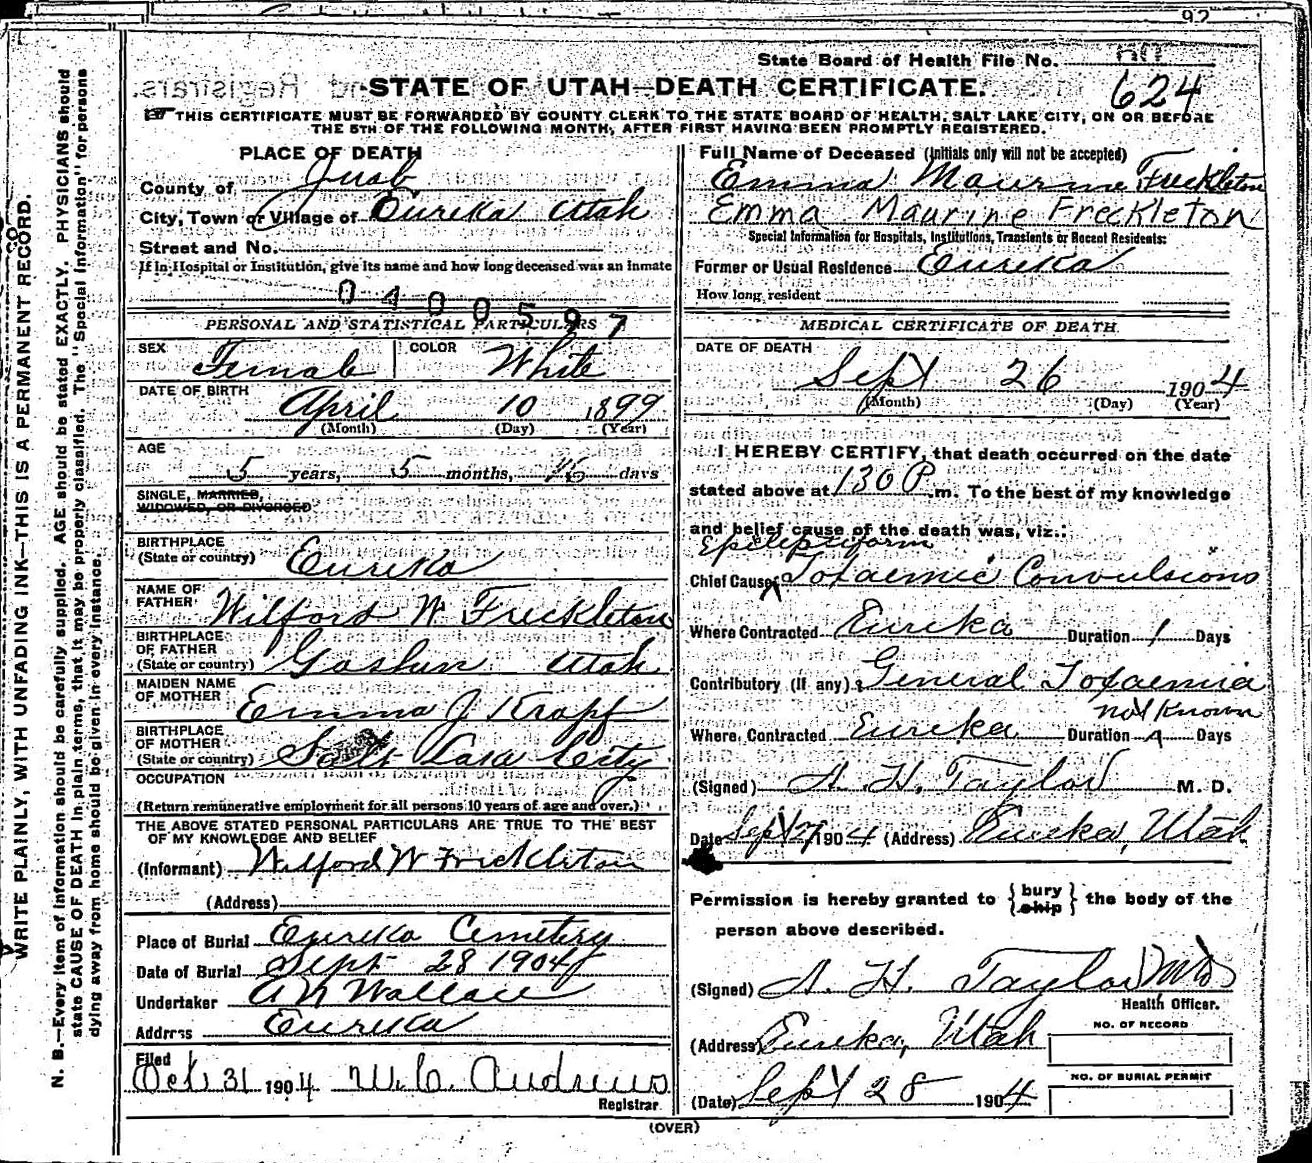 92
State Board of Health File No.
624
STATE OF UTAH—DEATH CERTIFICATE.
THIS CERTIFICATE MUST BE FORWARDED BY COUNTY CLERK TO THE STATE BOARD OF HEALTH, SALT LAKE CITY, ON OR BEFORE
THE 5TH OF THE FOLLOWING MONTH, AFTER FIRST HAVING BEEN PROMPTLY REGISTERED.
WRITE PLAINLY, WITH UNFADING INK—THIS IS A PERMANENT RECORD.
N. B.—Every item of information should be carefully supplied. AGE should be stated EXACTLY. PHYSICIANS should
state CAUSE OF DEATH in plain terms, that it may be properly classified. The "Special Information" for persons
dying away from home should be given in every instance.
PLACE OF DEATH
County of Juab
City, Town or Village of Eureka Utah
Street and No.
If in Hospital or Institution, give its name and how long deceased was an inmate
0400597
PERSONAL AND STATISTICAL PARTICULARS
SEX Female COLOR White
DATE OF BIRTH
April 10 1899
(Month) (Day) (Year)
AGE
5 years, 5 months, 16 days
SINGLE, MARRIED,
WIDOWED, OR DIVORCED
BIRTHPLACE
(State or country) Eureka
NAME OF
FATHER Wilford W Freckleton
BIRTHPLACE
OF FATHER
(State or country) Goshun Utah
MAIDEN NAME
OF MOTHER Emma J Kropf
BIRTHPLACE
OF MOTHER
(State or country) Salt Lake City
OCCUPATION
(Return remunerative employment for all persons 10 years of age and over.)
THE ABOVE STATED PERSONAL PARTICULARS ARE TRUE TO THE BEST
OF MY KNOWLEDGE AND BELIEF
(Informant) Wilford W Freckleton
(Address)
Place of Burial Eureka Cemetery
Date of Burial Sept 28 1904
Undertaker A N Wallace
Address Eureka
Filed
Oct 31 1904 W. C. Andrews
Registrar
Full Name of Deceased (Initials only will not be accepted)
Emma Maurine Freckleton
Emma Maurine Freckleton
Special Information for Hospitals, Institutions, Transients or Recent Residents:
Former or Usual Residence Eureka
How long resident
MEDICAL CERTIFICATE OF DEATH
DATE OF DEATH
Sept 26 1904
(Month) (Day) (Year)
I HEREBY CERTIFY, that death occurred on the date
stated above at 130 P.m. To the best of my knowledge
and belief cause of the death was, viz.:
Epileptiform
Chief Cause Toxaemic Convulsions
Where Contracted Eureka Duration 1 Days
Contributory (if any) General Toxaemia
not Known
Where Contracted Eureka Duration Days
(Signed) A. H. Taylor M. D.
Date Sept 27 1904 (Address) Eureka, Utah
Permission is hereby granted to {bury ship} the body of the
person above described.
(Signed) A. H. Taylor MD
Health Officer.
(Address) Eureka, Utah
NO. OF RECORD
NO. OF BURIAL PERMIT
(Date) Sept 28 1904
(OVER)